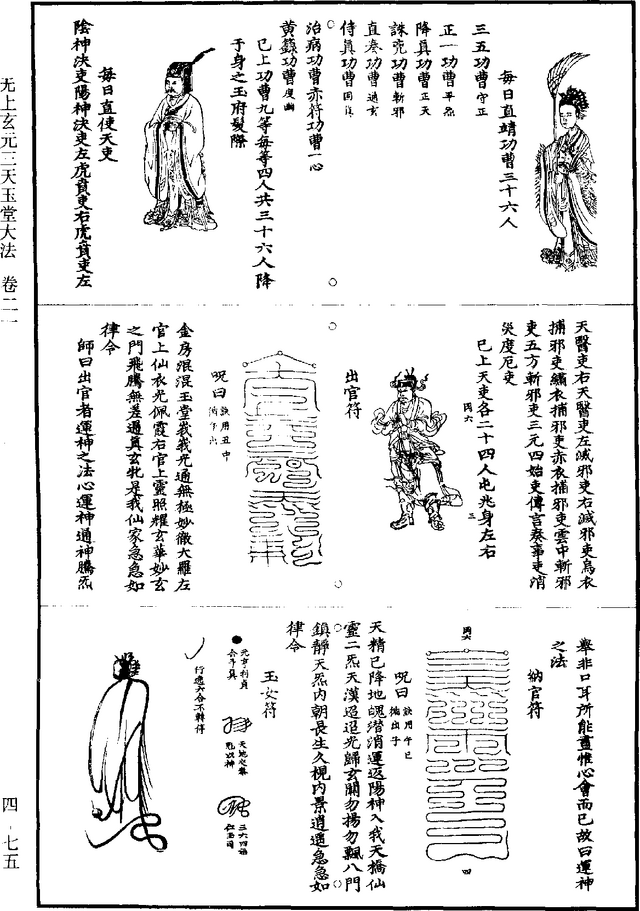 无上玄元三天玉堂大法 卷二一
四·七五
每日直靖功曹三十六人
三五功曹守正
正一功曹平炁
降真功曹正天
誅兇功曹斬邪
直奏功曹通玄
侍真功曹
治病功曹赤符功曹一心
黃籙功曹度幽
已上功曹九等每等四人共三十六人降
于身之玉府髮際
每日直使天吏
陰神決吏陽神決吏左虎賁吏右虎賁吏左
天醫吏右天醫吏左滅邪吏右滅邪吏烏衣
捕邪吏繡衣捕邪吏赤衣捕邪吏雲中斬邪
吏五方斬邪吏三元四始吏傳言奏事吏消
災度厄吏
已上天吏各二十四人屯兆身左右
丙六
三
出官符
呪曰
金房混混玉堂峩峩光通無極妙徹大羅左
官上仙衣光佩霞右官上靈照耀玄華妙玄
之門飛騰無差過真玄牝是我仙家急急如
律令
師曰出官者運神之法心運神通神騰炁
舉非口耳所能盡惟心會而已故曰運神
之法
納官符
丙六
四
呪曰
天精已降地魄潛消運返陽神入我天橋仙
靈二炁天漢迢迢光歸玄關勿揚勿飄八門
鎮靜天炁內朝長生久視內景逍遙急急如
律令
玉女符
元亨利貞
行遶六合不轉停